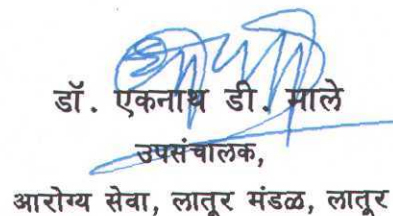 डॉ. एकनाथ डी. माले
उपसंचालक,
आरोग्य सेवा, लातूर मंडळ, लातूर